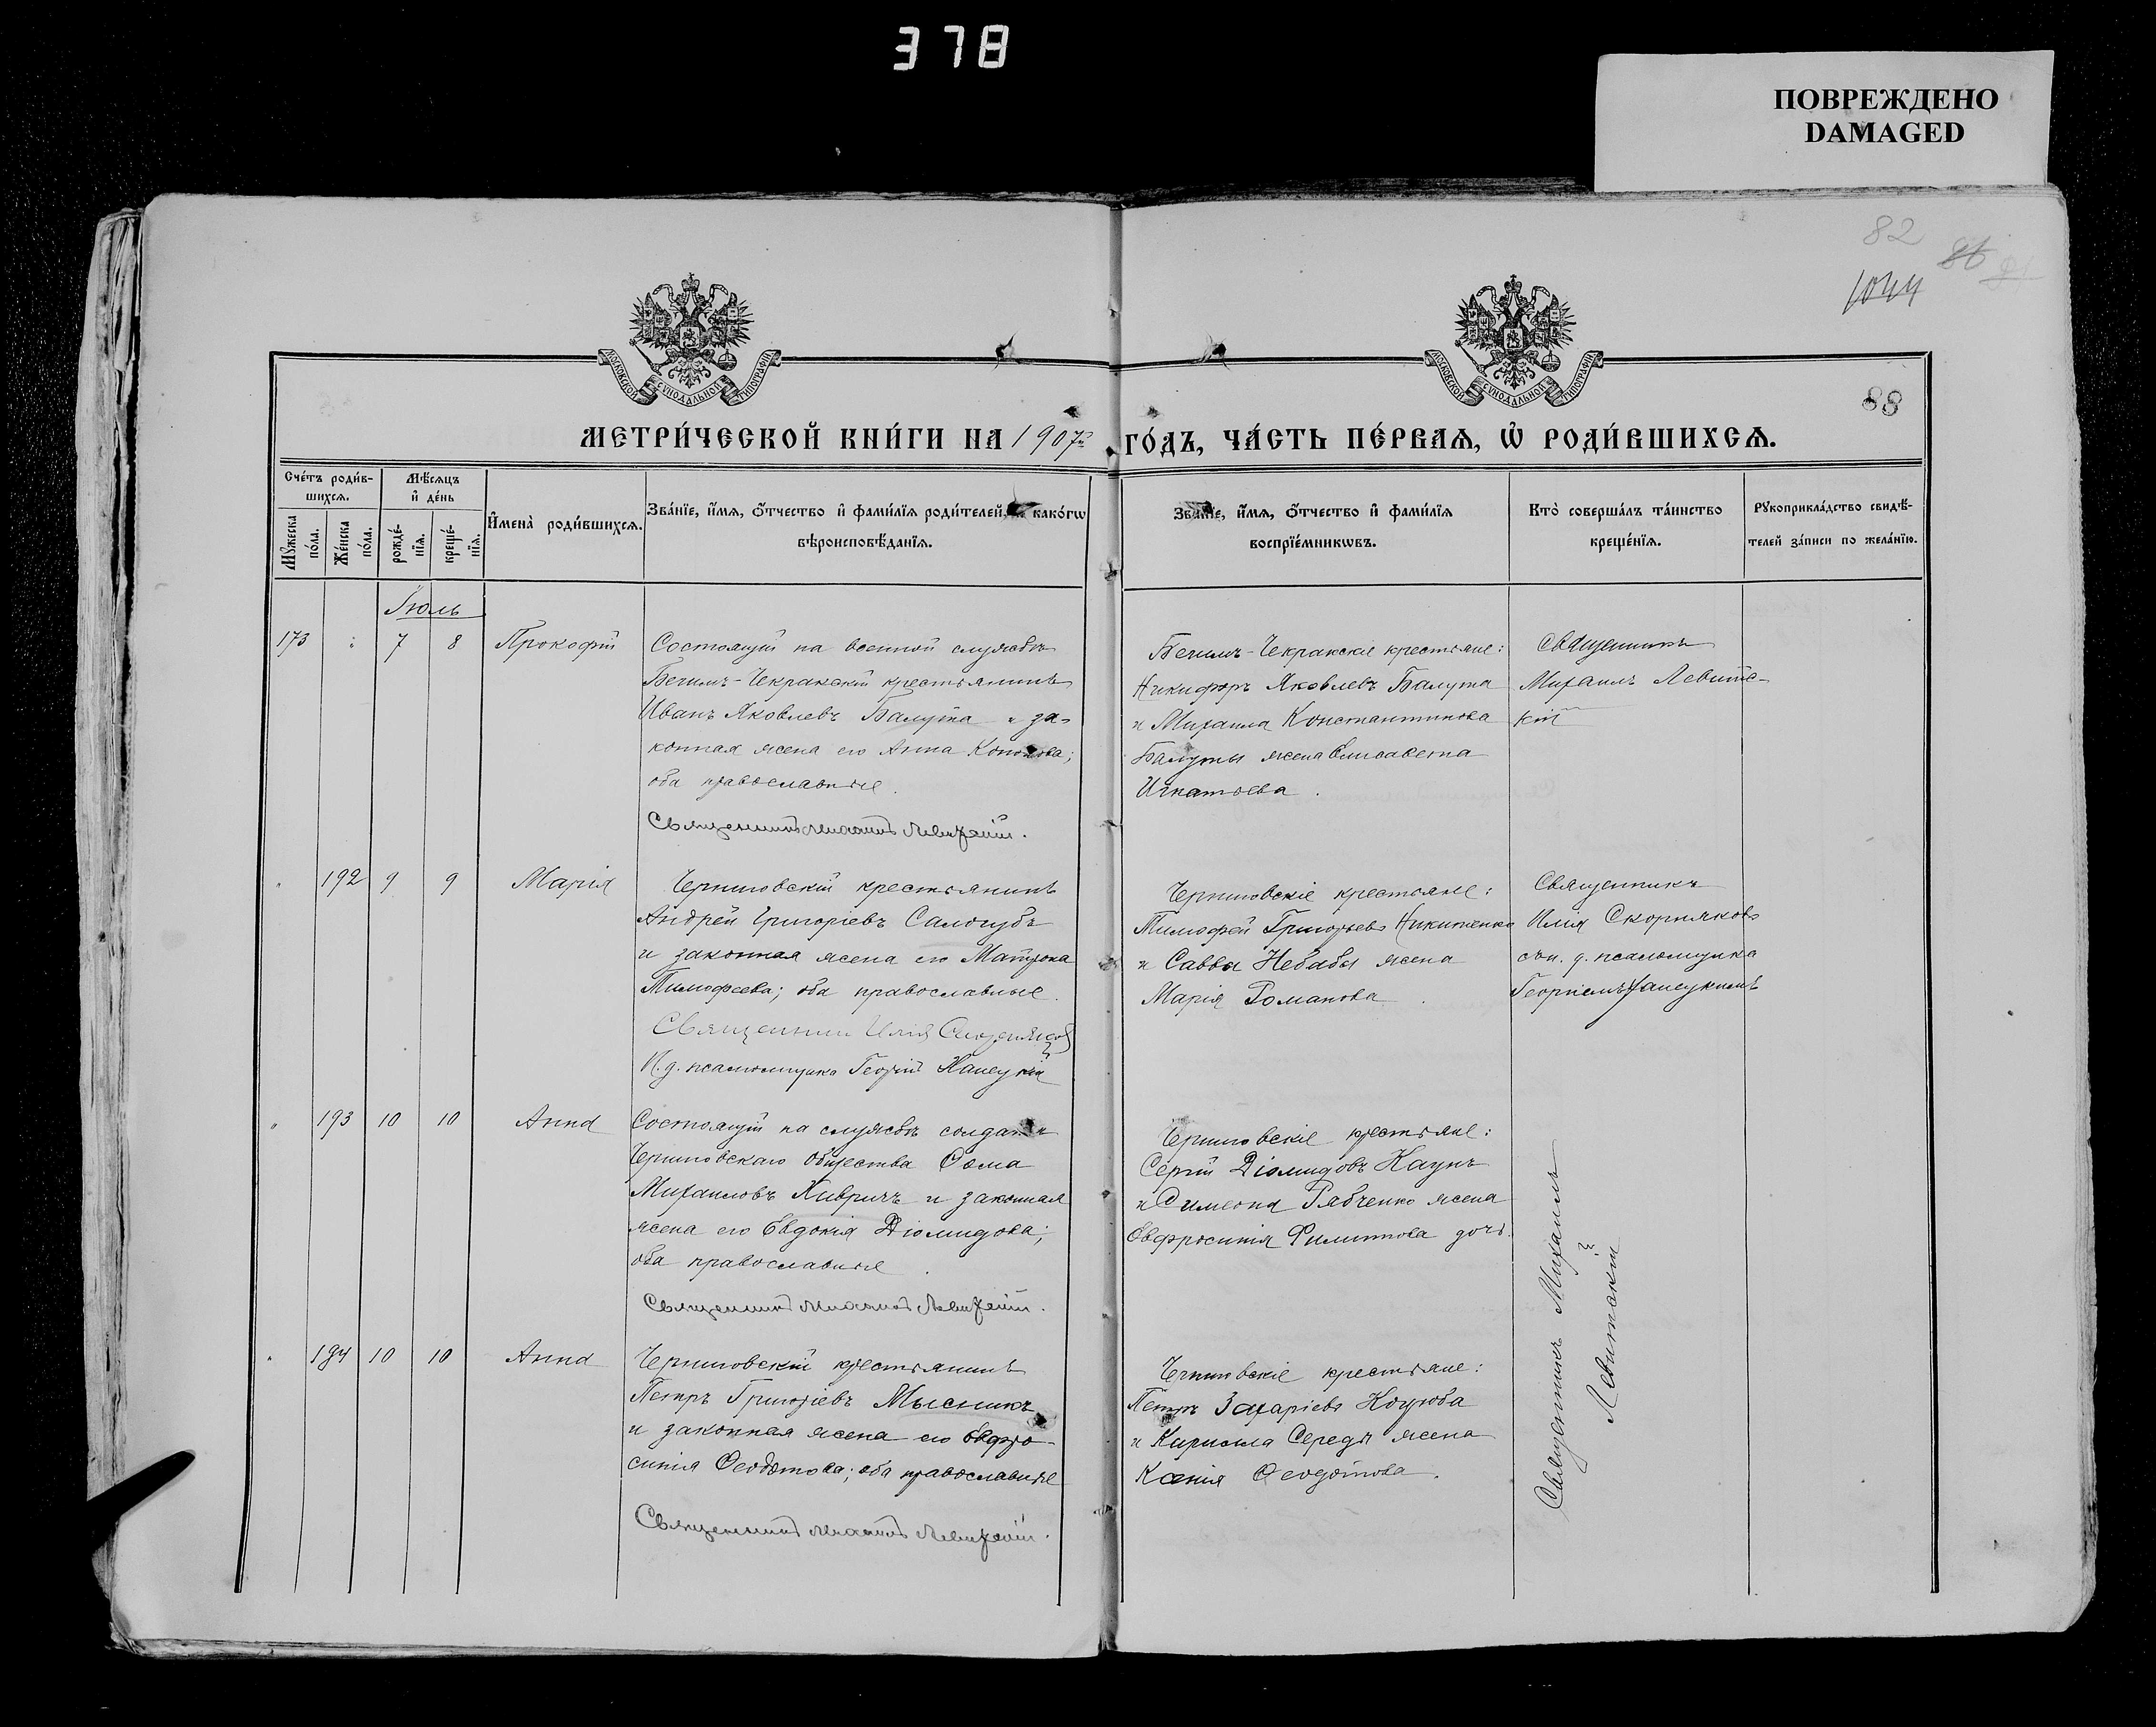 378
ПОВРЕЖДЕНО
DAMAGED
82
86
1044
88
МОСКОВСКОЙ СѴНОДАЛЬНОЙ ТИПОГРАФІИ
МОСКОВСКОЙ СѴНОДАЛЬНОЙ ТИПОГРАФІИ
МЕТРИ́ЧЕСКОЙ КНИ́ГИ НА 1907й ГО́ДЪ, ЧА́СТЬ ПЕ́РВАѦ, Ѡ҆ РОДИ́ВШИХСѦ.
Сче́тъ роди́в-
шихсѧ.
Мѣ́сѧцъ
и҆ де́нь
Мꙋ́жеска по́ла.
Же́нска по́ла.
рожде́-
нїѧ.
креще́-
нїѧ.
И҆мена̀ роди́вшихсѧ.
Зва́нїе, и҆́мѧ, ѻ҆́тчество и҆ фами́лїѧ роди́телей, како́гѡ
вѣроисповѣ́данїѧ.
Зва́нїе, и҆́мѧ, ѻ҆́тчество и҆ фами́лїѧ
воспрїе́мникѡвъ.
Кто̀ соверша́лъ та́инство
креще́нїѧ.
Рꙋкоприкла́дство свидѣ́-
телей за́писи по жела́нїю.
Іюль
173 7 8 Прокофій
Состоящій на военной службѣ
Бегимъ-Чекракскій крестьянинъ
Иванъ Яковлевъ Балута и за-
конная жена его Анна Кононова;
оба православные.
Священникъ Михаилъ Левитскій.
Бегимъ-Чекракскіе крестьяне:
Никифоръ Яковлевъ Балута
и Михаила Константинова
Балуты жена Елисавета
Игнатьева.
Священникъ
Михаилъ Левитс-
кій
192 9 9 Марія
Черниговскій крестьянинъ
Андрей Григоріевъ Салогубъ
и законная жена его Матрона
Тимофеева; оба православные.
Священникъ Илія Скорняковъ
И. д. псаломщика Георгій
Черниговскіе крестьяне:
Тимофей Григорьевъ Никитенко
и Саввы Небабы жена
Марія Романова.
Священникъ
Илія Скорняковъ
съ и. д. псаломщика
Георгіемъ
193 10 10 Анна
Состоящій на службѣ солдатъ
Черниговскаго общества Ѳома
Михаиловъ Хивричъ и законная
жена его Евдокія Діомидова;
оба православные.
Священникъ Михаилъ Левитскій.
Черниговскіе крестьяне:
Сергій Діомидовъ Каунъ
и Симеона Рябченко жена
Евфросинія Филиппова дочь.
Священникъ Михаилъ
Левитскій
194 10 10 Анна
Черниговскій крестьянинъ
Петръ Григоріевъ Мысникъ
и законная жена его Евфро-
синія Ѳеодотова; оба православные
Священникъ Михаилъ Левитскій.
Черниговскіе крестьяне:
Петръ Захаріевъ Коцюба
и Кирилла Середы жена
Ксенія Ѳеодотова.